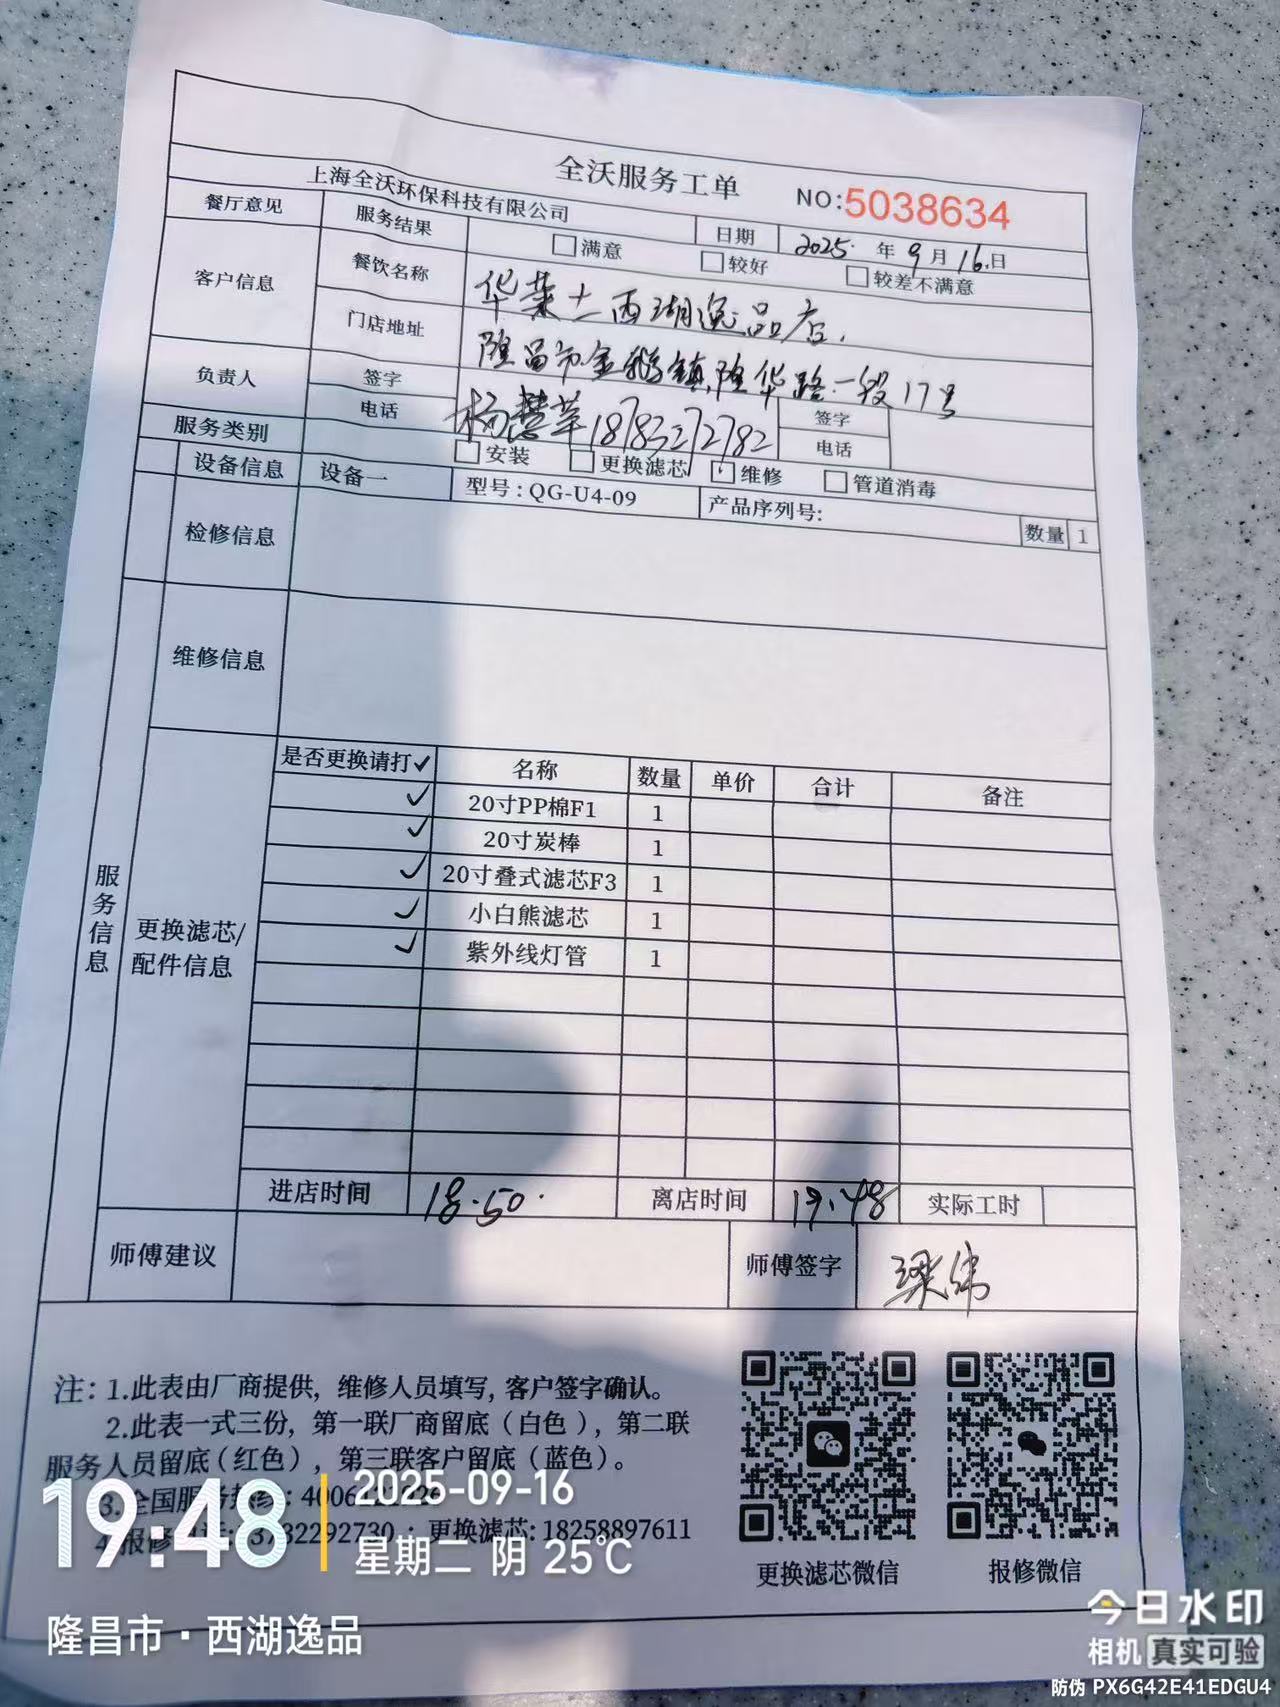 全沃服务工单 NO:5038634
上海全沃环保科技有限公司 日期 2025 年 9 月 16 日
餐厅意见 服务结果 满意 较好 较差不满意
客户信息 餐饮名称 华莱士西湖逸品店
门店地址 隆昌市金鹅镇隆华路一段17号
负责人 签字 签字
电话 18783272782 电话
服务类别 安装 更换滤芯 维修 管道消毒
设备信息 设备一 型号:QG-U4-09 产品序列号: 数量 1
检修信息
维修信息
服务信息
更换滤芯/
配件信息
是否更换请打✓ 名称 数量 单价 合计 备注
✓ 20寸PP棉F1 1
✓ 20寸炭棒 1
✓ 20寸叠式滤芯F3 1
✓ 小白熊滤芯 1
✓ 紫外线灯管 1
进店时间 18.50 离店时间 19.48 实际工时
师傅建议 师傅签字 梁纬
注: 1.此表由厂商提供, 维修人员填写, 客户签字确认。
2.此表一式三份, 第一联厂商留底（白色）, 第二联
服务人员留底（红色）, 第三联客户留底（蓝色）。
3.全国服务热线: 4006
4.报修 更换滤芯: 18258897611
更换滤芯微信 报修微信
19:48
2025-09-16
星期二 阴 25℃
隆昌市·西湖逸品
今日水印
相机 真实可验
防伪 PX6G42E41EDGU4